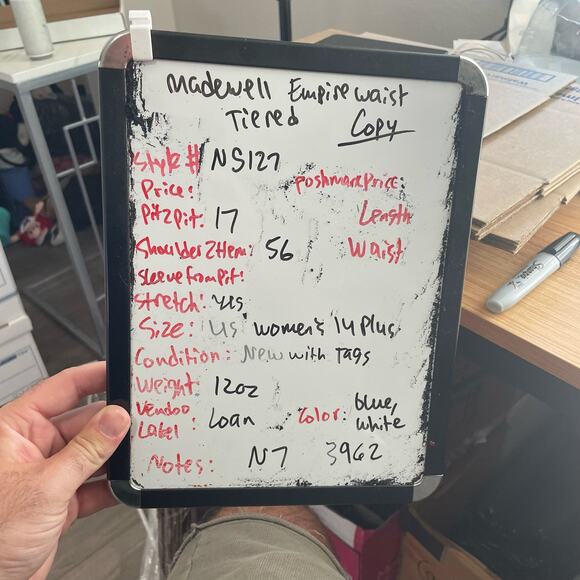 madewell Empire waist
Tiered Copy
Style # NS127
Price:
PoshmarkPrice:
Pit2pit: 17
Length
Shoulder2Hem: 56
Waist
Sleeve from Pit:
Stretch:
Size: US women's 14 Plus
Condition: New with Tags
Weight: 12oz
Vendoo Label: Loan
Color: blue, white
Notes: N7 3962
Sharpie